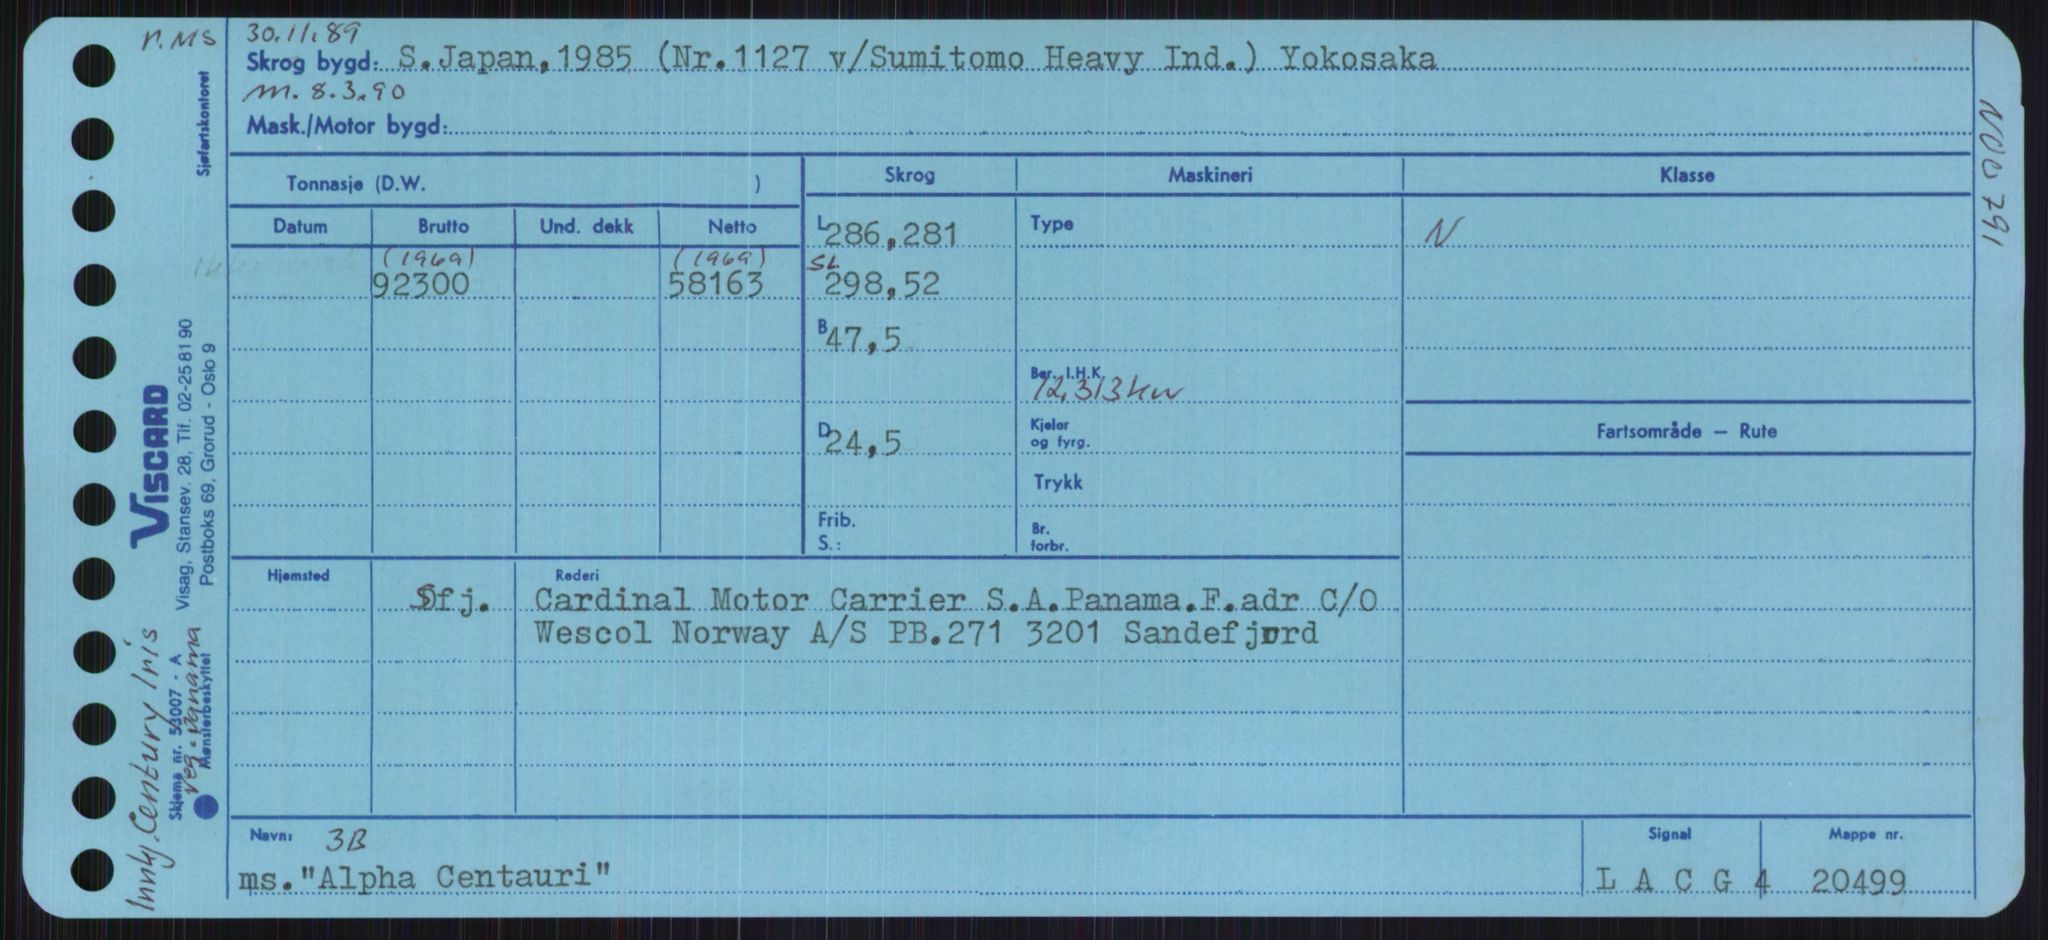 n.MS
30.11.89
Skrog bygd: S.Japan,1985 (Nr.1127 v/Sumitomo Heavy Ind.) Yokosaka
m. 8.3.90
Mask./Motor bygd:
Sjøfartskontoret
Tonnasje (D.W. )
Skrog
Maskineri
Klasse
Datum
Brutto
Und. dekk
Netto
(1969)
92300
(1969)
58163
L 286,281
SL 298,52
B 47,5
D 24,5
Frib.
S.:
Type
Ber. I.H.K.
12.313 kw
Kjeler
og fyrg.
Trykk
Br.
forbr.
N
Fartsområde — Rute
Hjemsted
Sfj.
Rederi
Cardinal Motor Carrier S.A.Panama.F.adr C/O
Wescol Norway A/S PB.271 3201 Sandefjord
Navn: 3B
ms."Alpha Centauri"
Signal
L A C G 4
Mappe nr.
20499
VISCARD
Visag, Stansev. 28, Tlf. 02-25 81 90
Postboks 69, Grorud - Oslo 9
Skjema nr. 53007 - A
Mønsterbeskyttet
Innkj. Century Iris
reg. Panama